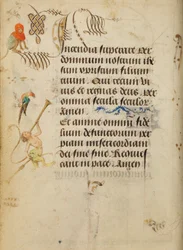 incendia superare Per
dominum nostrum ihe
sum xpristum filium
tuum. Qui tecum vi
uis et regnas deus. Per
omnia secula seculorum
Amen.
Et anime omnium fide
lium defunctorum per
piam misericordiam
dei sine fine Requies
cant in pace. Amen